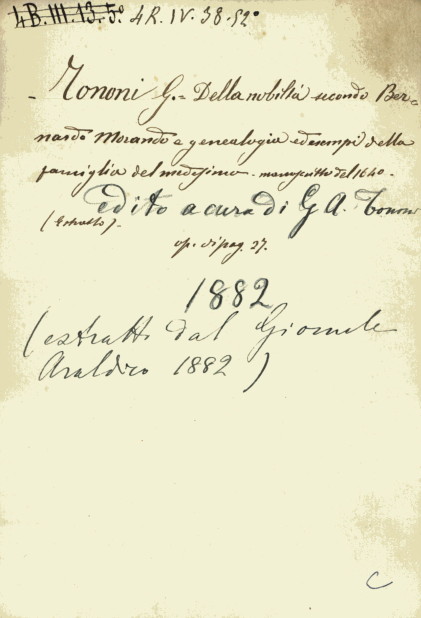 4B.III.13.5° 4R.IV.38.52°
- Tononi G. = Della nobiltà secondo Ber=
nardo Morando e genealogia ed esempi della
famiglia del medesimo - manoscritto del 1640 -
edito a cura di G A. Tononi
(Estratto) -
op. di pag. 27.
1882
(estratto dal Giornale
Araldico 1882)
C